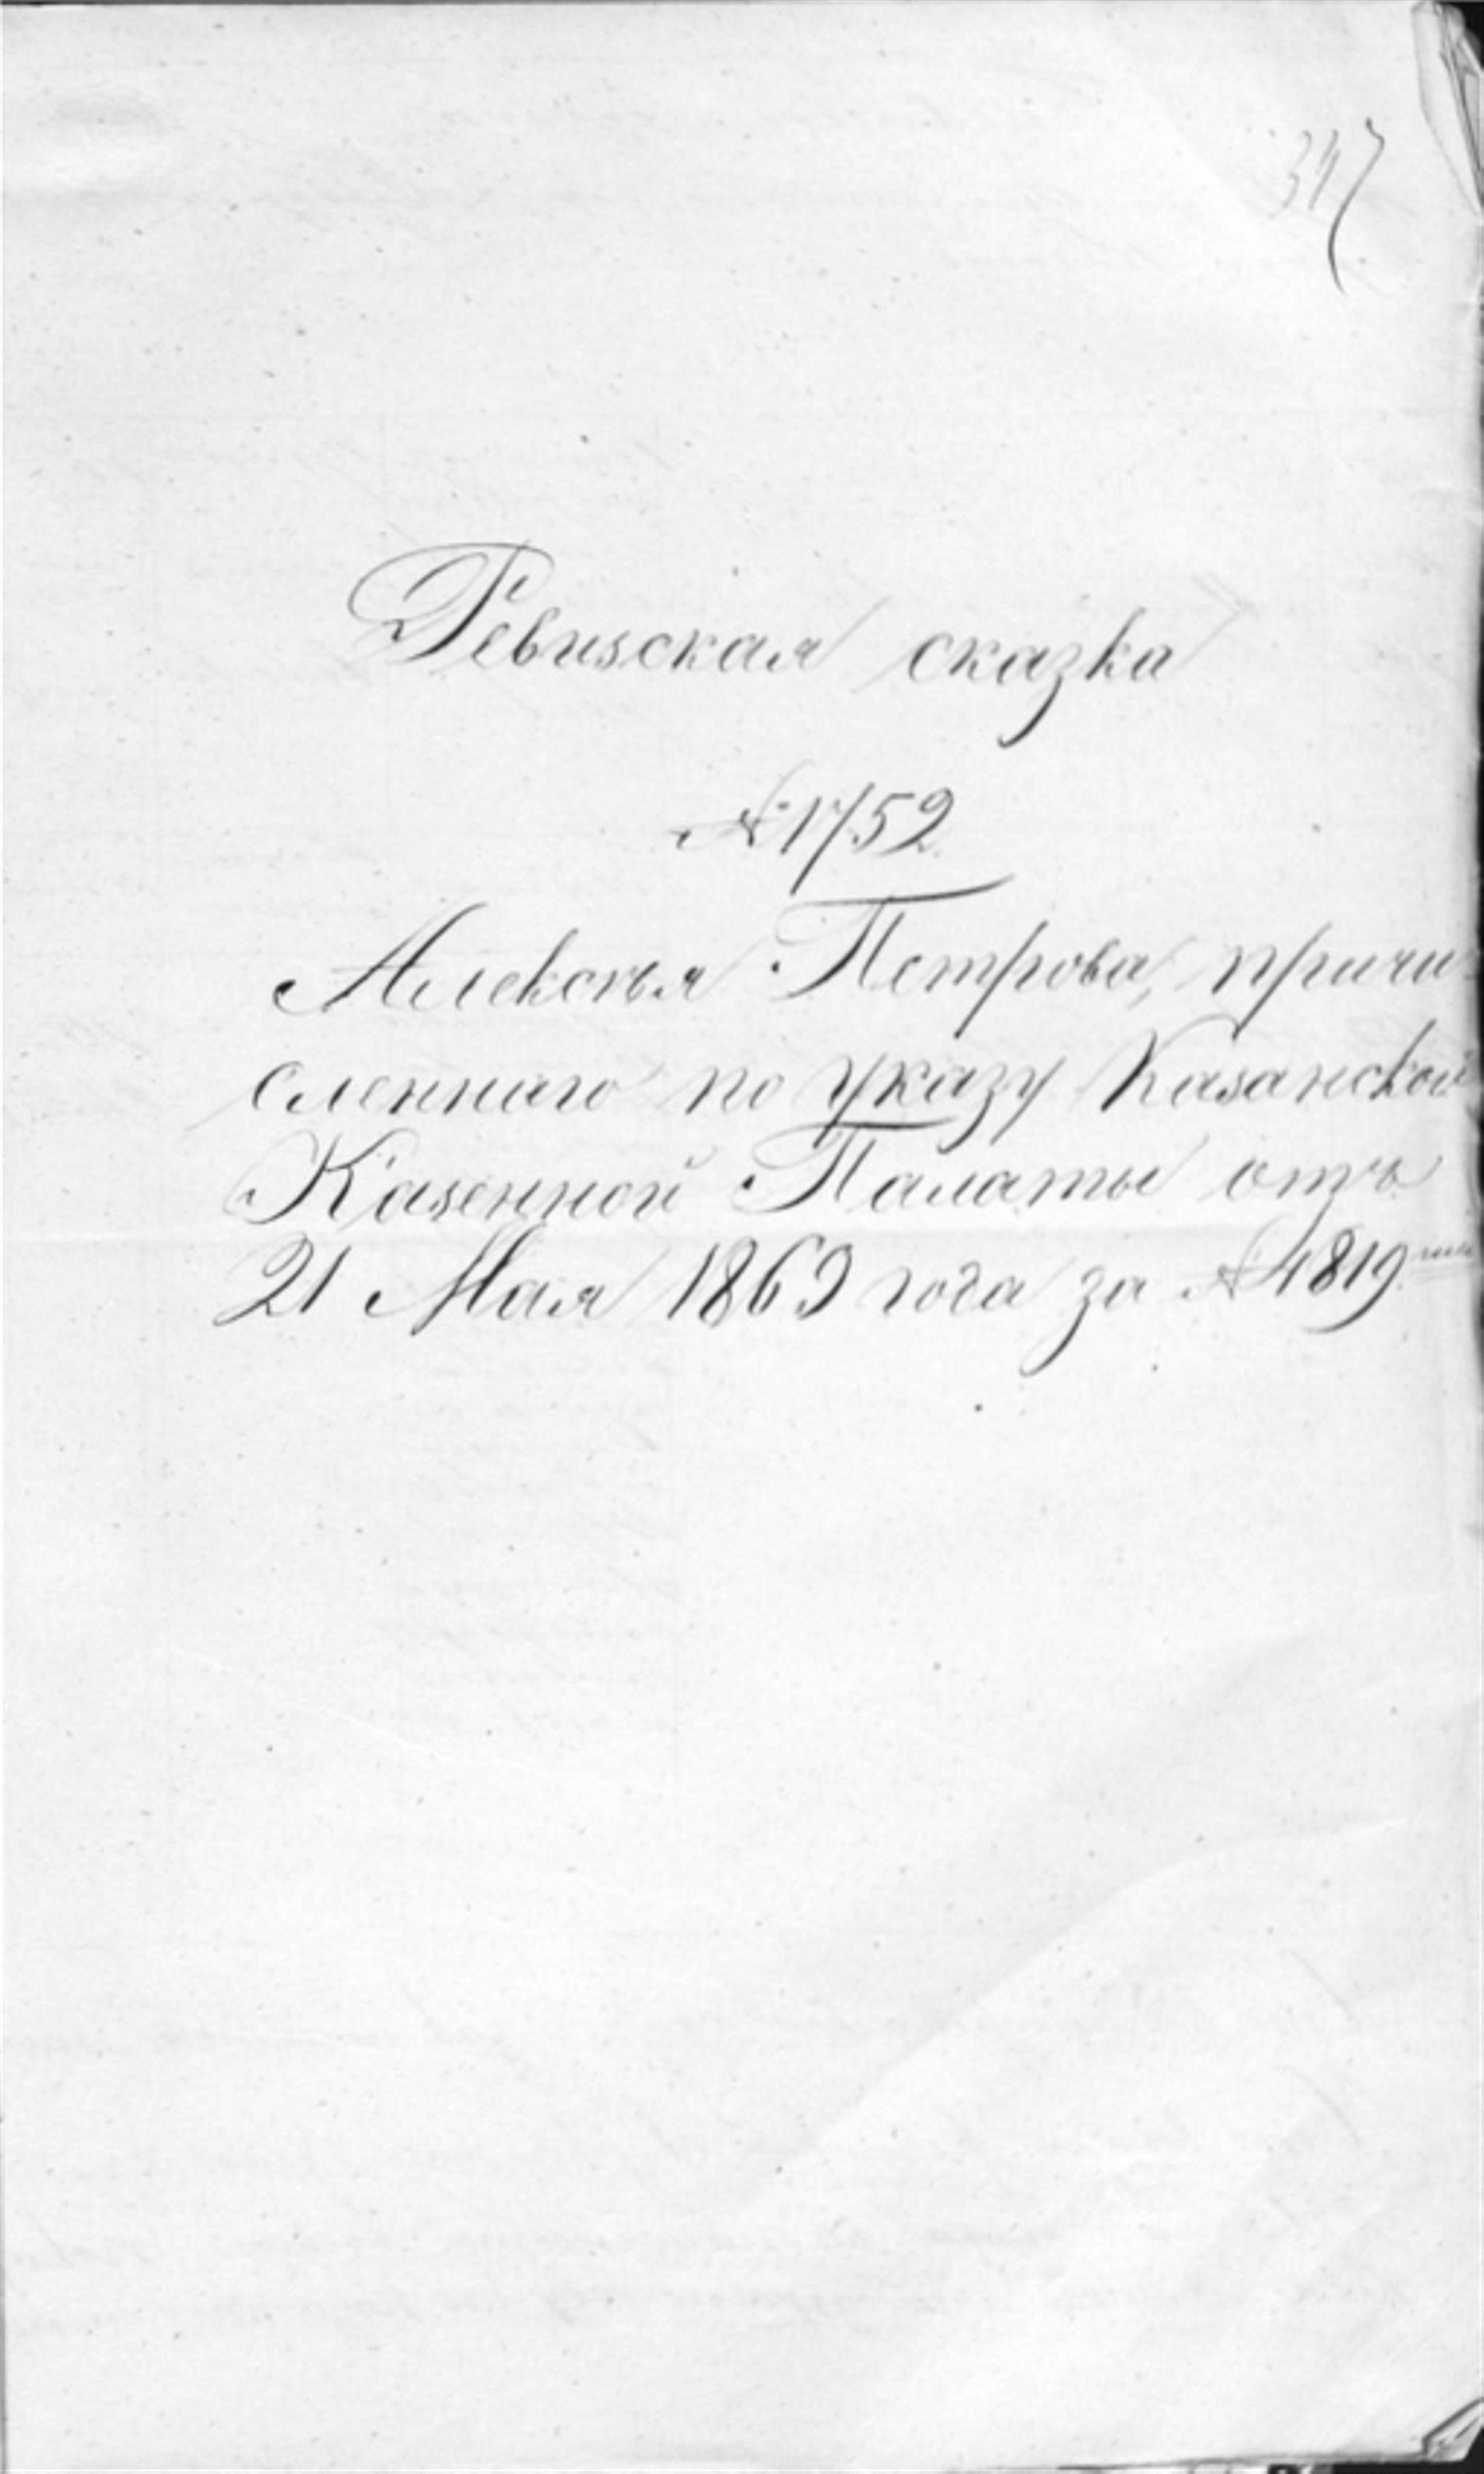 347
Ревизская сказка
№ 1752
Алексѣя Петрова, причи
сленнаго по указу Казанской
Казенной Палаты отъ
21 Мая 1869 года за № 4819